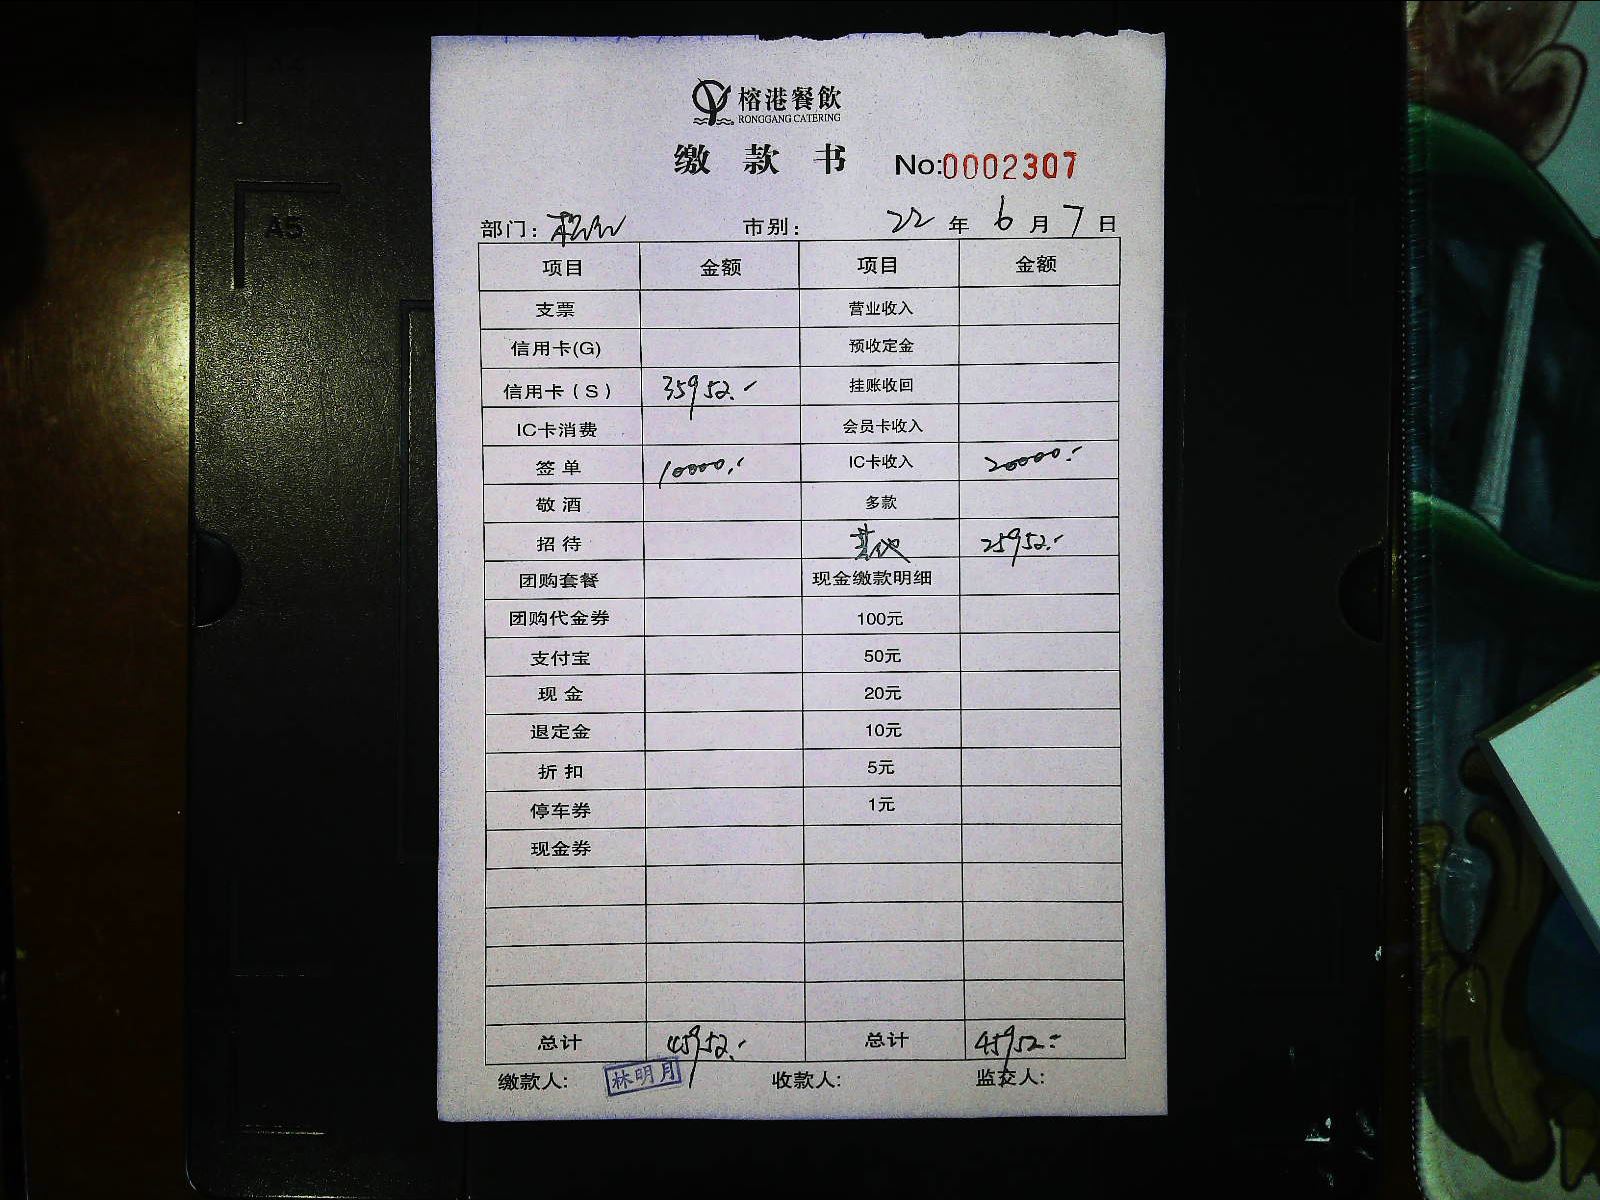 榕港餐飲
RONGGANG CATERING
缴 款 书 No:0002307
部门: 市别: 22 年 6 月 7 日
项目 金额 项目 金额
支票 营业收入
信用卡(G) 预收定金
信用卡(S) 35952.- 挂账收回
IC卡消费 会员卡收入
签单 10000.- IC卡收入 20000.-
敬酒 多款
招待 其他 25952.-
团购套餐 现金缴款明细
团购代金券 100元
支付宝 50元
现金 20元
退定金 10元
折扣 5元
停车券 1元
现金券
总计 45952.- 总计 45952.-
缴款人: 林明月 收款人: 监交人:
A5